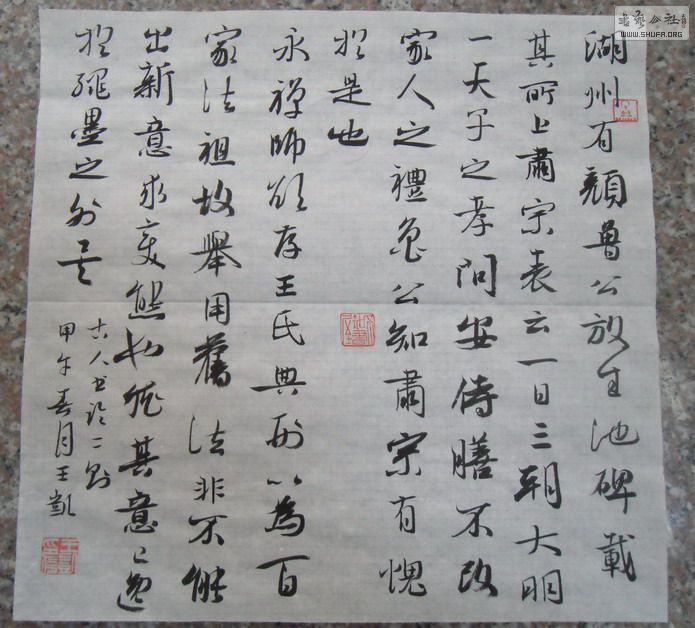 湖州有顏魯公放生池碑載
其所上肅宗表云一日三朝大明
一天子之孝問安侍膳不改
家人之禮魯公知肅宗有愧
於是也
永禪師欲存王氏典刑以為百
家法祖故舉用舊法非不能
出新意求变態也然其意已逸
於繩墨之外矣
古人書論二則
甲午春月王凱
書法公社
WWW.SHUFA.ORG